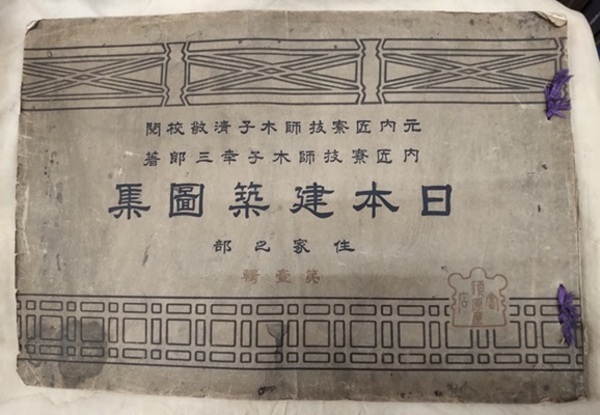 元内匠寮技師木子清敬校閲
内匠寮技師木子幸三郎著
日本建築圖集
住家之部
第壹輯
須原屋